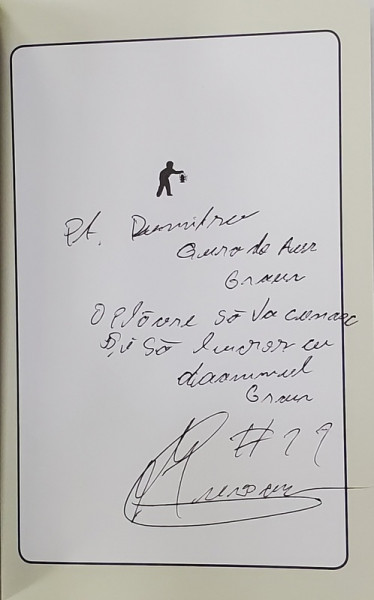 Pt. Dumitru
Gura de Aur
Graur
O plăcere să va cunosc
Și să lucrez cu
doamnul
Graur
#99